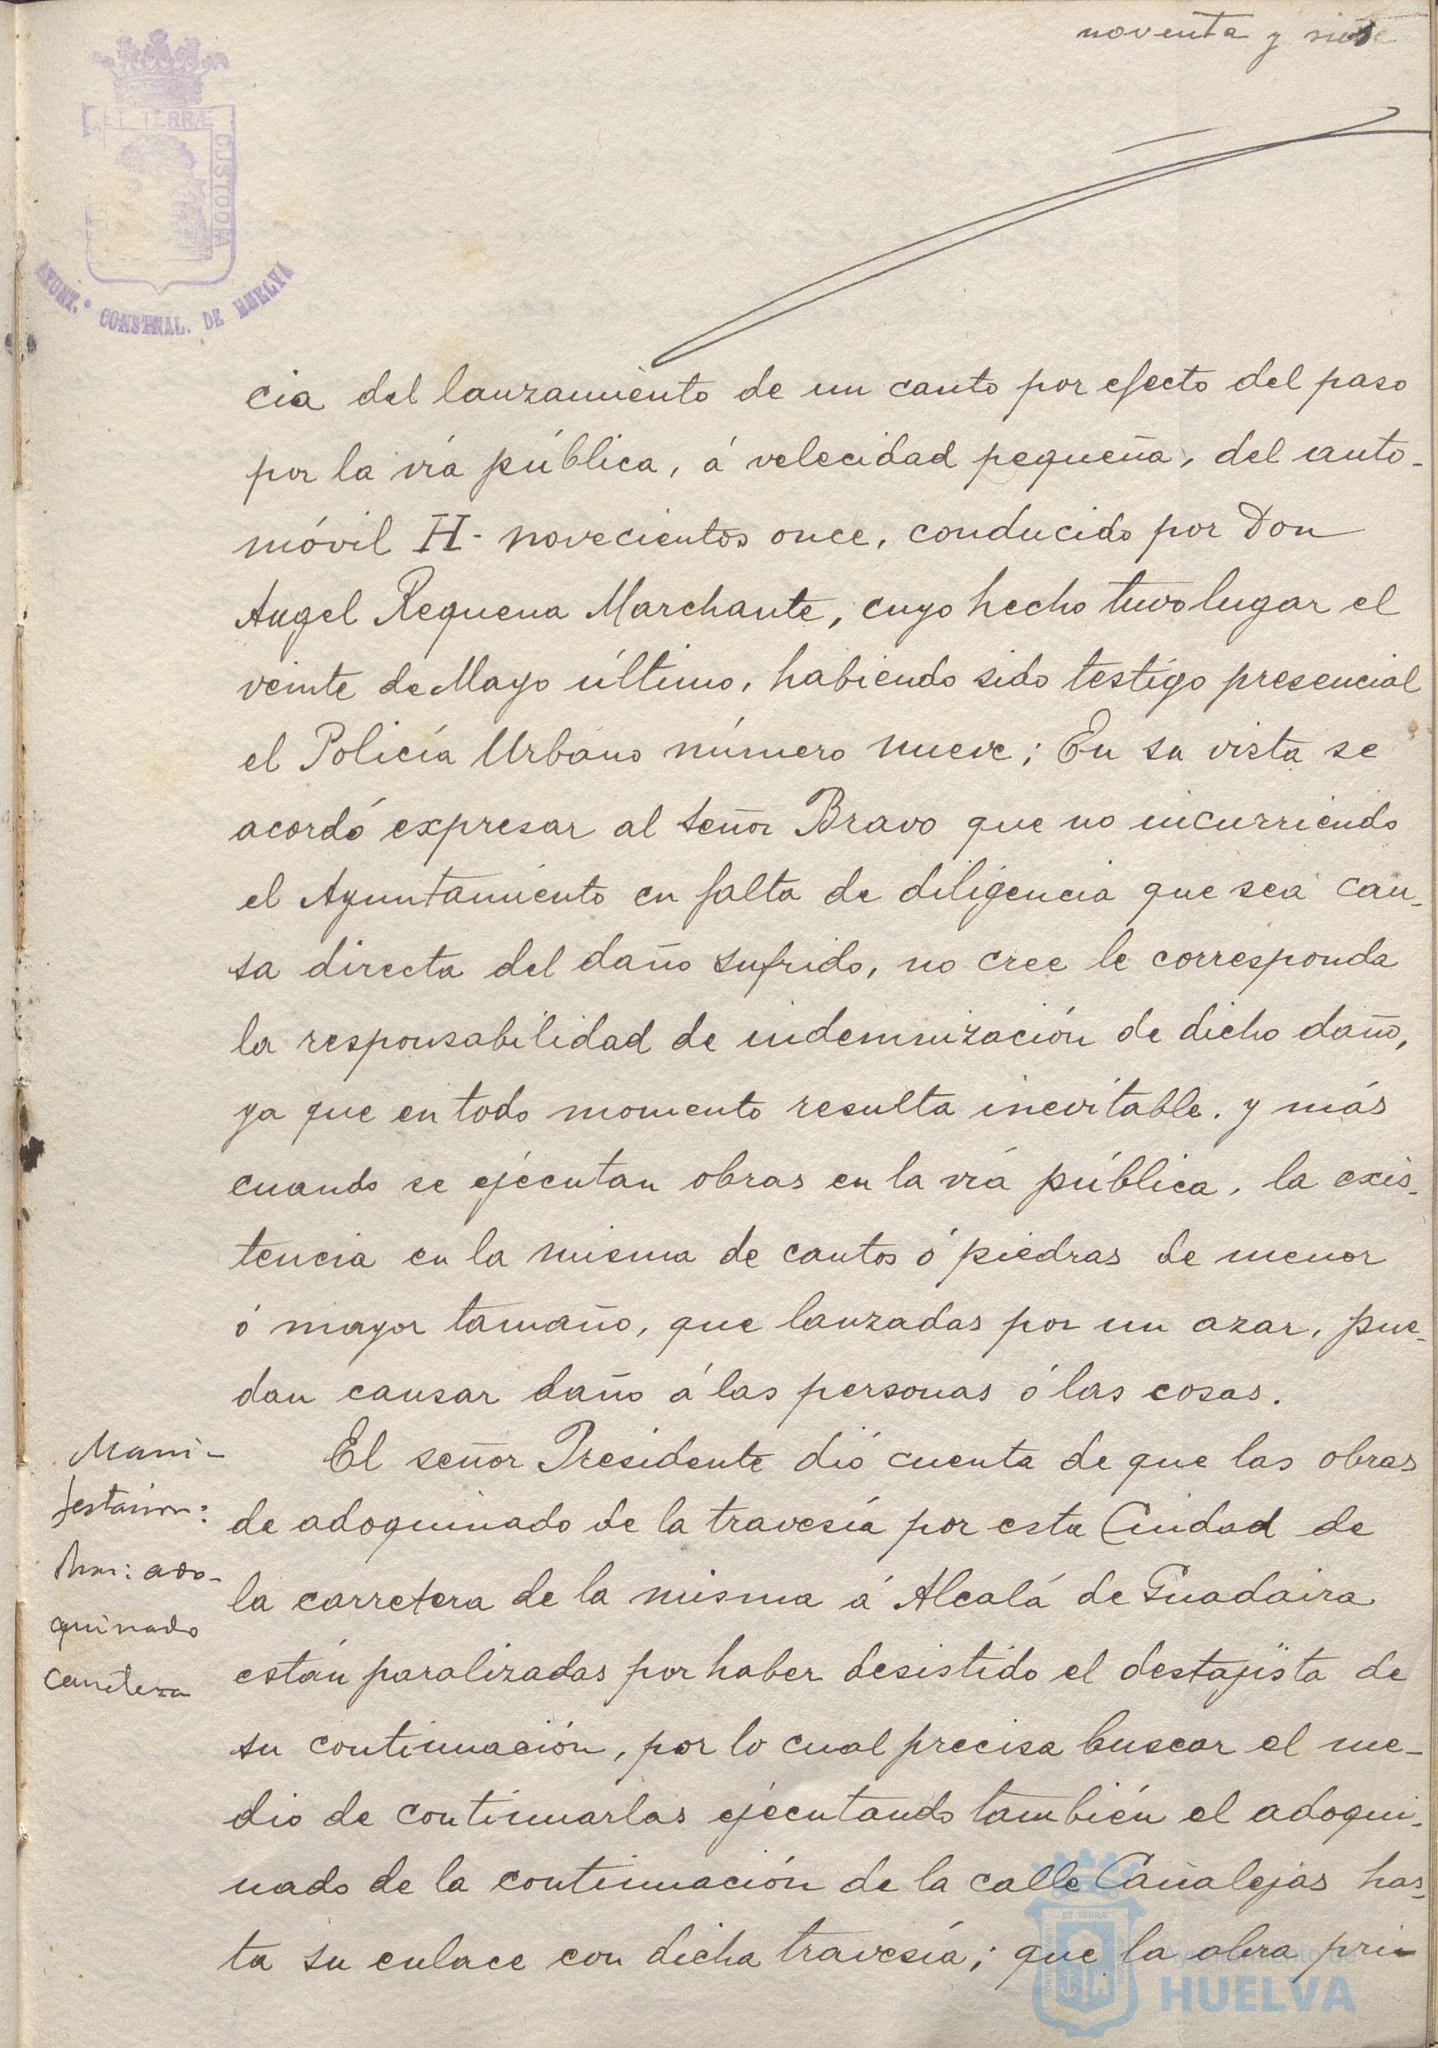 noventa y siete
ET TERRÆ
CUSTODIA
AYUNT.º CONSTNAL. DE HUELVA
cia del lanzamiento de un canto por efecto del paso
por la vía pública, á velecidad pequeña, del auto-
móvil H- novecientos once, conducido por Don
Angel Requena Marchante, cuyo hecho tuvo lugar el
veinte de Mayo último, habiendo sido testigo presencial
el Policía Urbano número nueve; En su vista se
acordó expresar al señor Bravo que no incurriendo
el Ayuntamiento en falta de diligencia que sea cau-
sa directa del daño sufrido, no cree le corresponda
la responsabilidad de indemnización de dicho daño,
ya que en todo momento resulta inevitable, y más
cuando se ejecutan obras en la vía pública, la exis-
tencia en la misma de cantos ó piedras de menor
ó mayor tamaño, que lanzadas por un azar, pue-
dan causar daño á las personas ó las cosas.
Mani-
festacion:
ado-
quinado
carretera
El señor Presidente dió cuenta de que las obras
de adoquinado de la travesía por esta Ciudad de
la carretera de la misma á Alcalá de Guadaira
están paralizadas por haber desistido el destajista de
su continuación, por lo cual precisa buscar el me-
dio de continuarlas ejecutando también el adoqui-
nado de la continuación de la calle Canalejas has-
ta su enlace con dicha travesía; que la obra prin
Ayuntamiento de
HUELVA